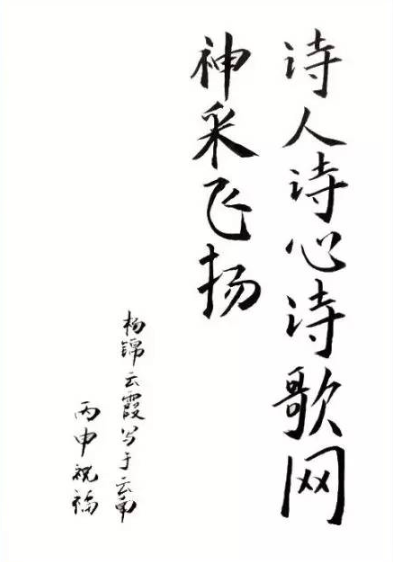 诗人诗心诗歌网
神采飞扬
杨锦云霞写于云南
丙申祝福